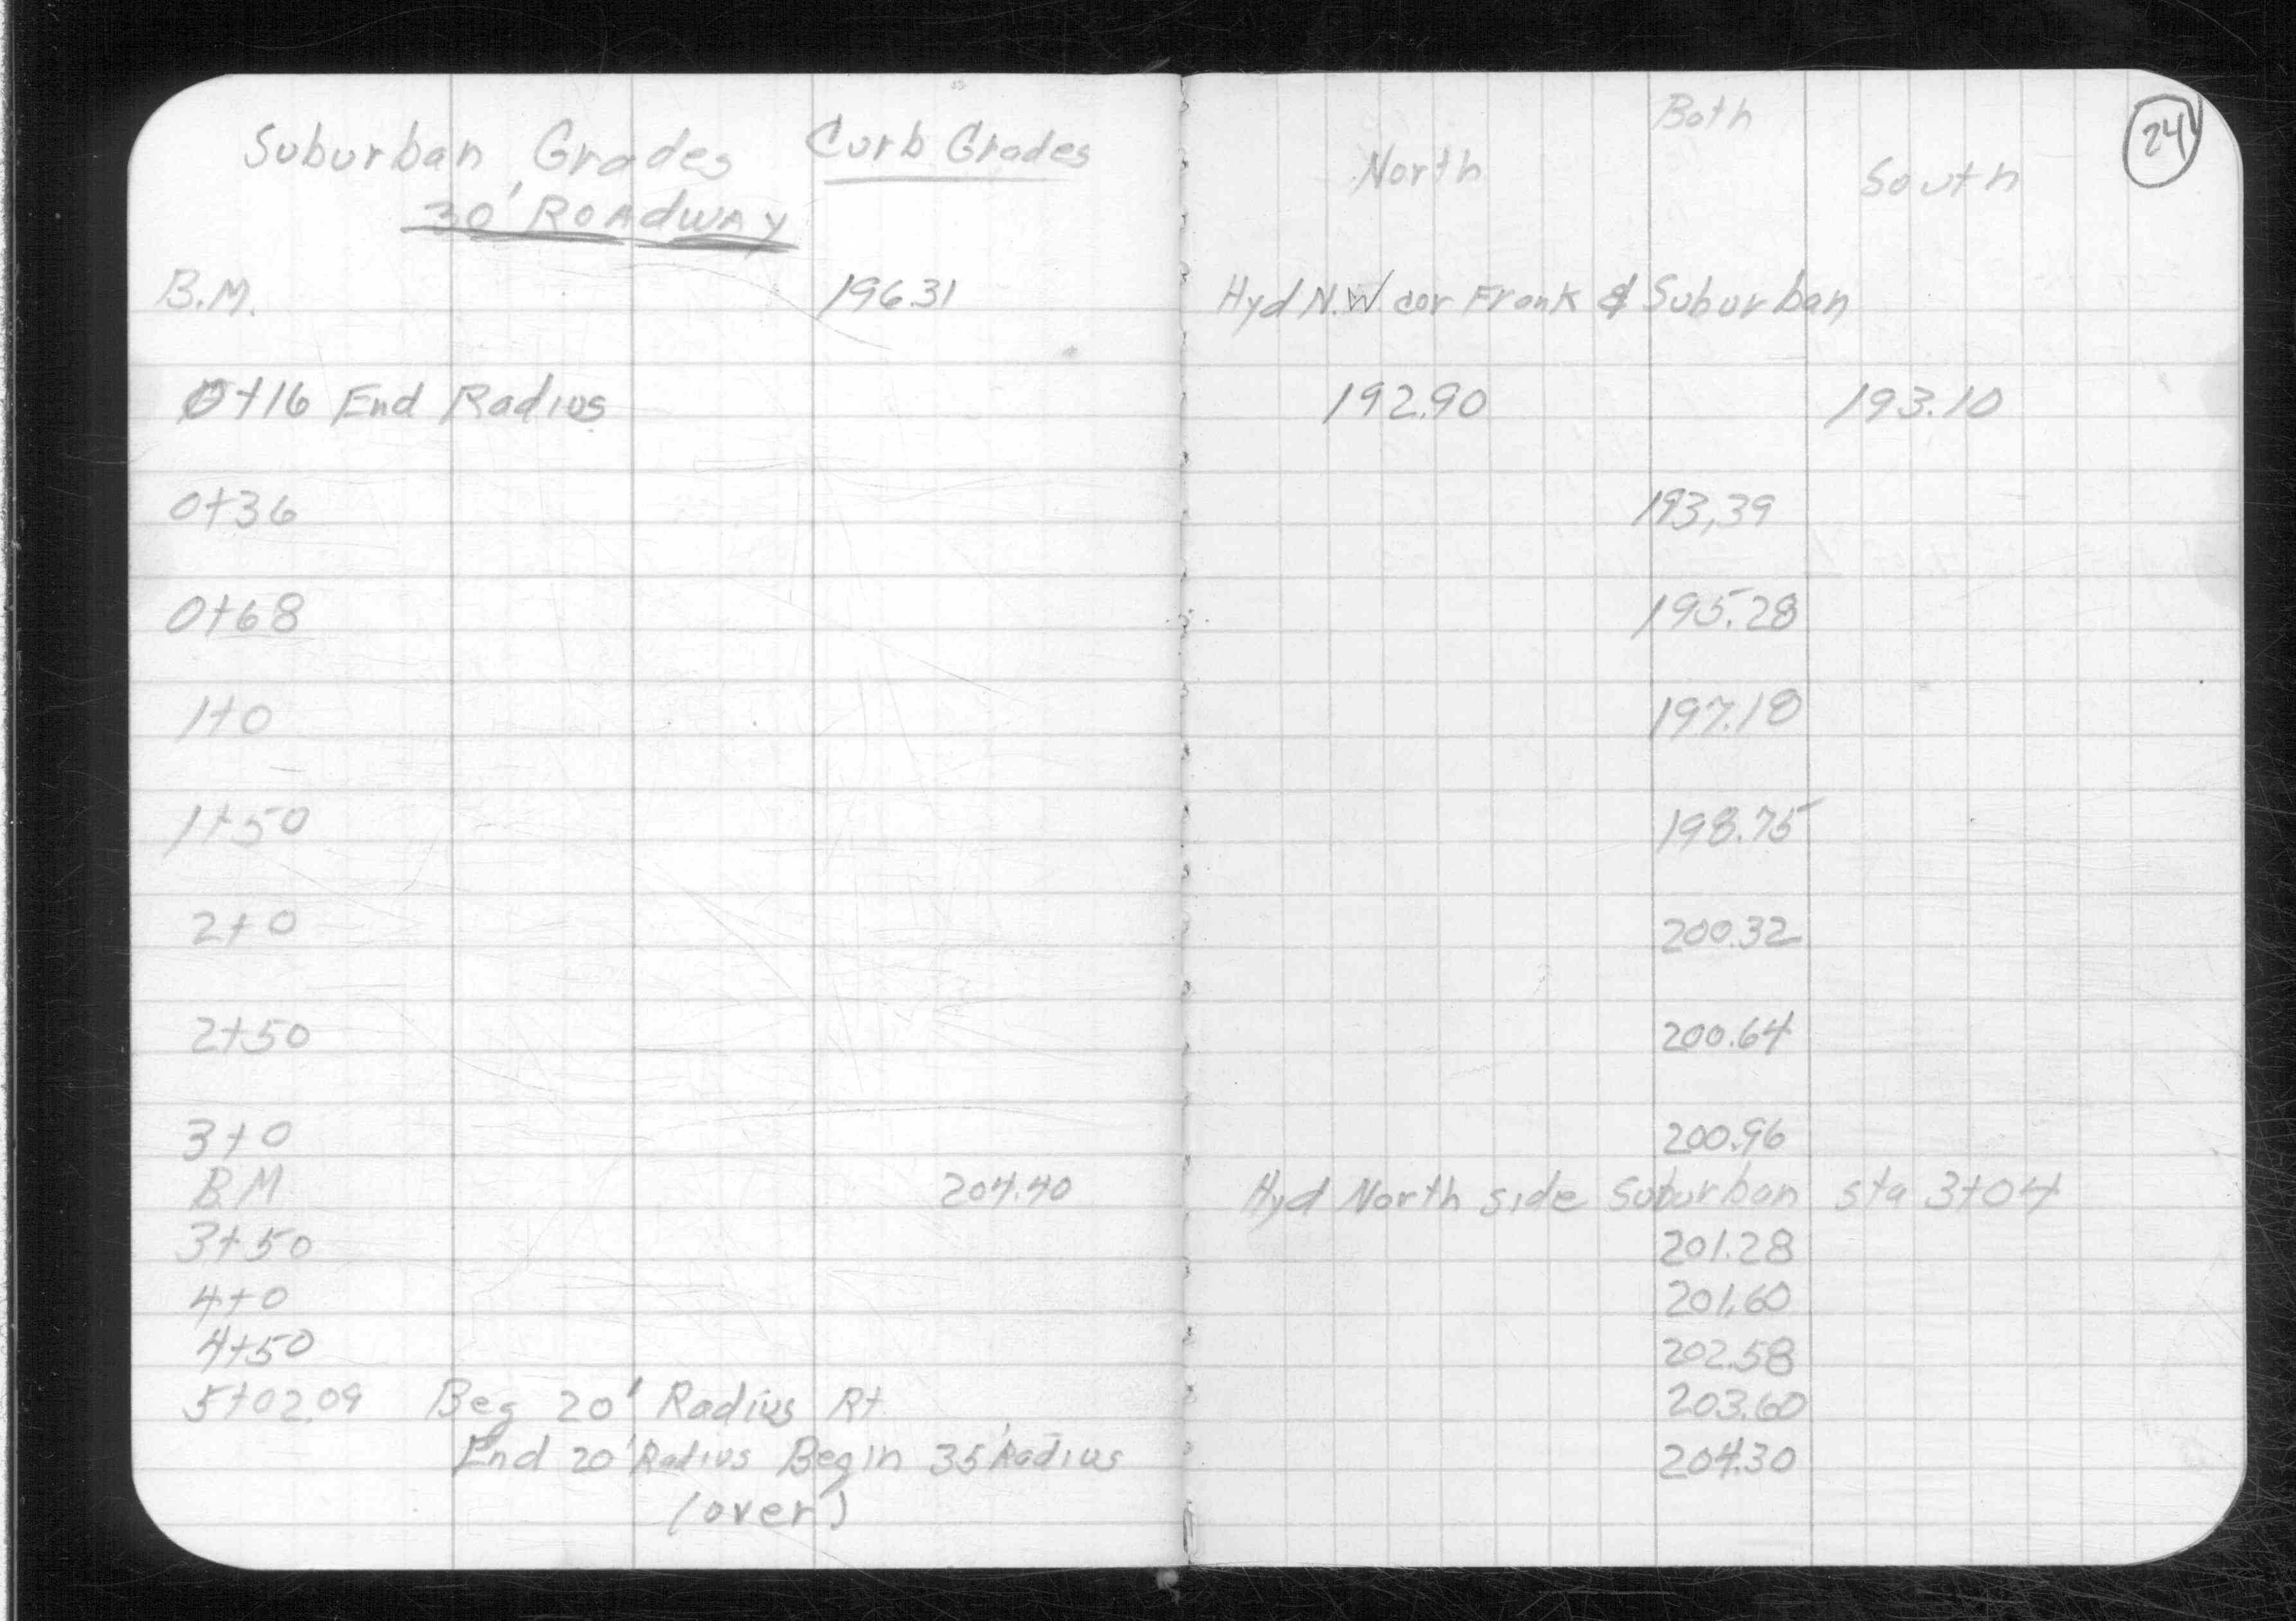 Suburban Grades Curb Grades North Both South 24
30' ROADWAY
B.M. 196.31 Hyd N.W cor Frank & Suburban
0+16 End Radius 192.90 193.10
0+36 193.39
0+68 195.28
1+0 197.18
1+50 198.75
2+0 200.32
2+50 200.64
3+0 200.96
B.M 204.40 Hyd North side Suburban sta 3+04
3+50 201.28
4+0 201.60
4+50 202.58
5+02.09 Beg 20' Radius Rt. 203.60
End 20' Radius Begin 35' Radius 204.30
(over)